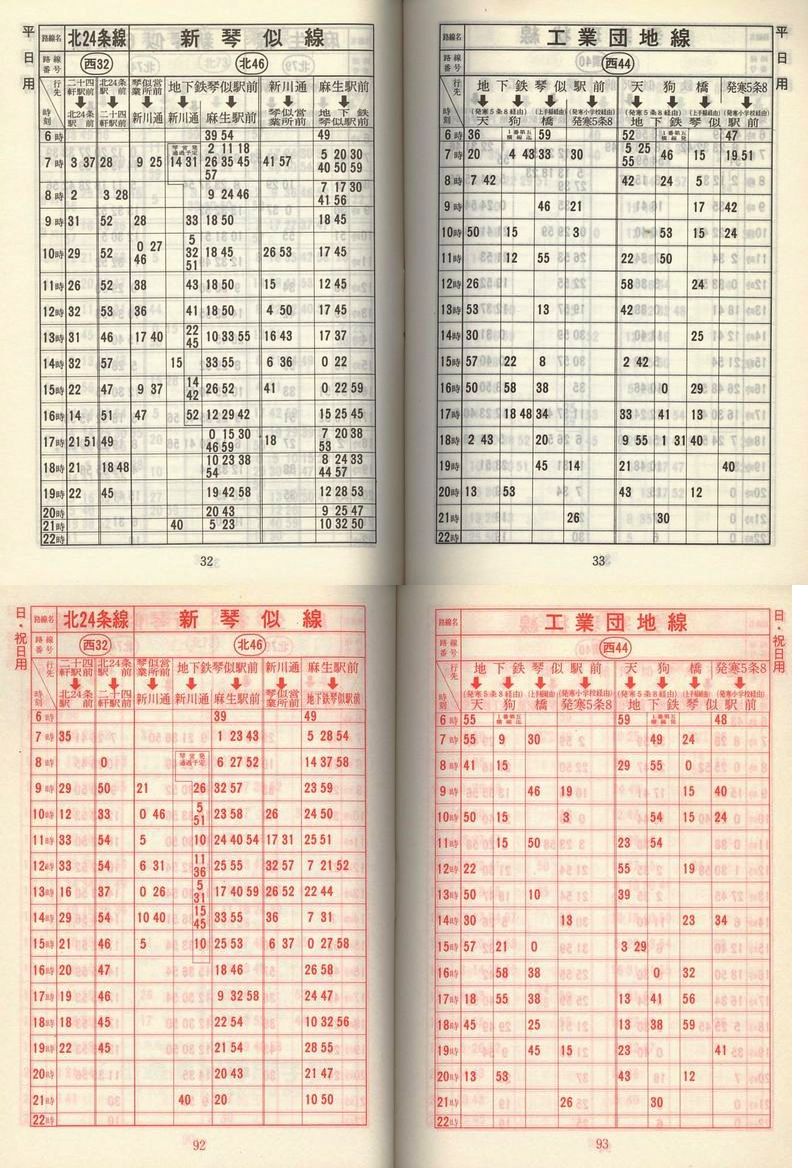 平日用
路線名 北24条線 新琴似線
路線番号 西32 北46
行先 二十四軒駅前 北24条駅前 琴似営業所前 地下鉄琴似駅前 新川通 麻生駅前
時刻 北24条駅前 二十四軒駅前 新川通 新川通 麻生駅前 琴似営業所前 地下鉄琴似駅前
6時 39 54 49
7時 3 37 28 9 25 14 31 2 11 18 26 35 45 57 41 57 5 20 30 40 50 59
8時 2 3 28 9 24 46 7 17 30 41 56
9時 31 52 28 33 18 50 18 45
10時 29 52 0 27 46 5 32 51 18 45 26 53 17 45
11時 26 52 38 43 18 50 15 12 45
12時 32 53 36 41 18 50 4 50 17 45
13時 31 46 17 40 22 45 10 33 55 16 43 17 37
14時 32 57 15 33 55 6 36 0 22
15時 22 47 9 37 14 42 26 52 41 0 22 59
16時 14 51 47 52 12 29 42 15 25 45
17時 21 51 49 0 15 30 46 59 18 7 20 38 53
18時 21 18 48 10 23 38 54 8 24 33 44 57
19時 22 45 19 42 58 12 28 53
20時 20 43 9 25 47
21時 40 5 23 10 32 50
22時
32
平日用
路線名 工業団地線
路線番号 西44
行先 地下鉄琴似駅前 天狗橋 発寒5条8
(発寒5条8経由) (上手稲経由) (発寒小学校経由) (発寒5条8経由) (上手稲経由) (発寒小学校経由)
時刻 天狗橋 発寒5条8 地下鉄琴似駅前
6時 36 59 52 47
7時 20 4 43 33 30 5 25 55 46 15 19 51
8時 7 42 42 24 5
9時 46 21 17 42
10時 50 15 3 53 15 24
11時 12 55 22 50
12時 26 58 24
13時 53 13 42
14時 30 25
15時 57 22 8 2 42
16時 50 58 38 0 29
17時 18 48 34 33 41 13
18時 2 43 20 9 55 1 31 40
19時 45 14 21 40
20時 13 53 43 12
21時 26 30
22時
33
日・祝日用
路線名 北24条線 新琴似線
路線番号 西32 北46
行先 二十四軒駅前 北24条駅前 琴似営業所前 地下鉄琴似駅前 新川通 麻生駅前
時刻 北24条駅前 二十四軒駅前 新川通 新川通 麻生駅前 琴似営業所前 地下鉄琴似駅前
6時 39 49
7時 35 1 23 43 5 28 54
8時 0 6 27 52 14 37 58
9時 29 50 21 26 32 57 23 59
10時 12 33 0 46 5 51 23 58 26 24 50
11時 33 54 5 10 24 40 54 17 31 25 51
12時 33 54 6 31 11 36 25 55 32 57 7 21 52
13時 16 37 0 26 5 31 17 40 59 26 52 22 44
14時 29 54 10 40 15 45 33 55 36 7 31
15時 21 46 5 10 25 53 6 37 0 27 58
16時 20 47 18 46 26 58
17時 19 46 9 32 58 24 47
18時 18 45 22 54 10 32 56
19時 22 45 21 54 28 55
20時 20 43 21 47
21時 40 20 10 50
22時
92
日・祝日用
路線名 工業団地線
路線番号 西44
行先 地下鉄琴似駅前 天狗橋 発寒5条8
(発寒5条8経由) (上手稲経由) (発寒小学校経由) (発寒5条8経由) (上手稲経由) (発寒小学校経由)
時刻 天狗橋 発寒5条8 地下鉄琴似駅前
6時 55 59 48
7時 55 9 30 49 24
8時 41 15 29 55 0
9時 46 19 15 40
10時 50 15 3 54 15 24
11時 15 50 23 54
12時 22 55 19
13時 50 10 39
14時 30 13 23 34
15時 57 21 0 3 29
16時 58 38 0 32
17時 18 55 38 13 41 56
18時 45 25 13 38 59
19時 45 15 23 41
20時 13 53 43 12
21時 26 30
22時
93